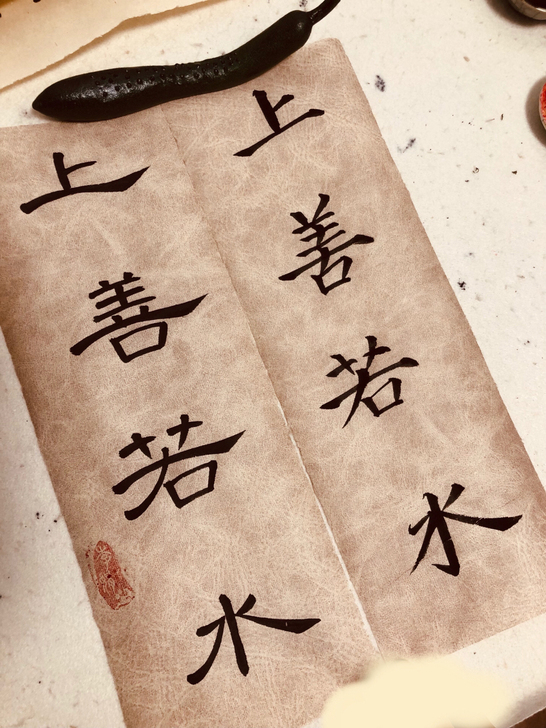 上善若水
上善若水